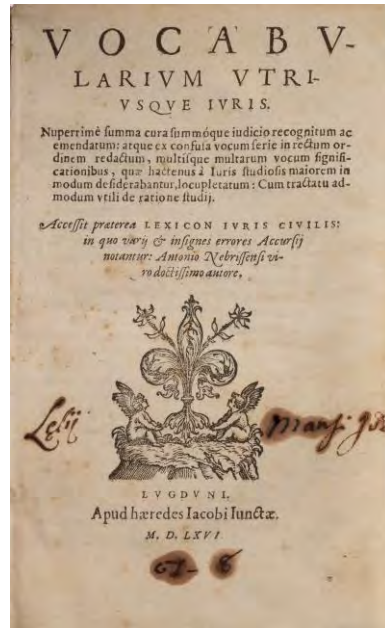 VOCABV-
LARIVM VTRI-
VSQVE IVRIS.
Nuperrimè summa cura summóque iudicio recognitum ac
emendatum: atque ex confusa vocum serie in rectum or-
dinem redactum, multisque multarum vocum signifi-
cationibus, quæ hactenus à Iuris studiosis maiorem in
modum desiderabantur, locupletatum: Cum tractatu ad-
modum vtili de ratione studij.
Accessit præterea LEXICON IVRIS CIVILIS:
in quo varij & insignes errores Accursij
notantur: Antonio Nebrissensi vi-
ro doctissimo autore.
Lelij Mansi
LVGDVNI,
Apud hæredes Iacobi Iunctæ.
M. D. LXVI